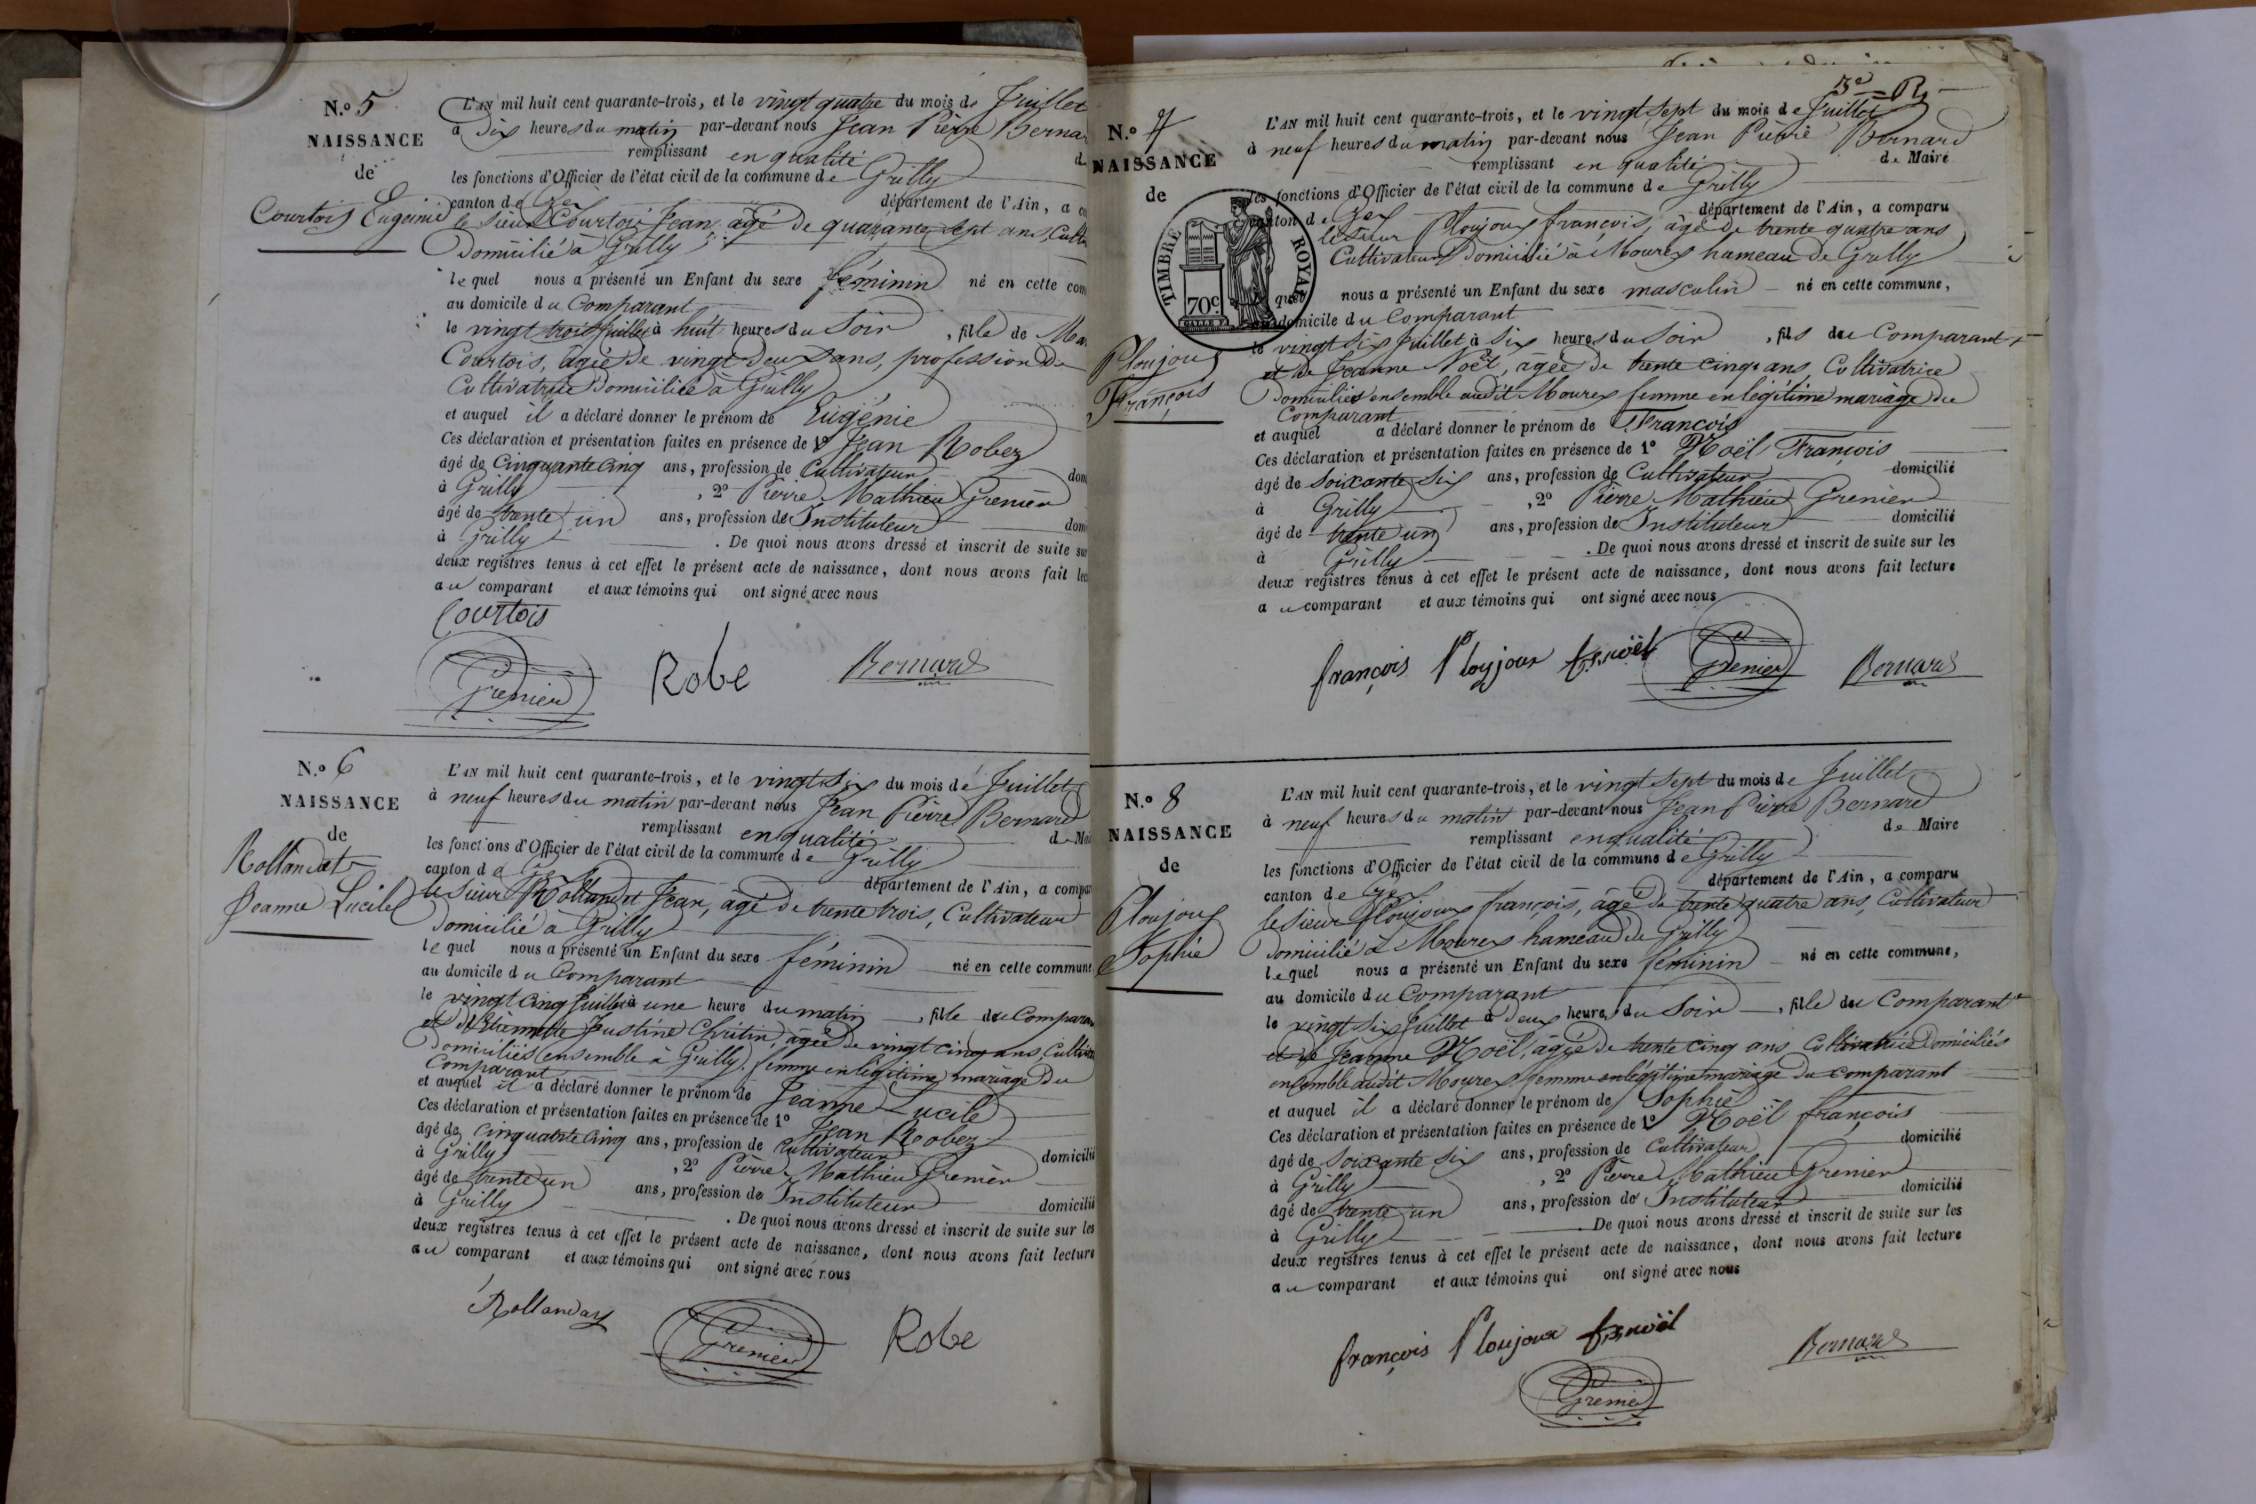 N.o 5
NAISSANCE
de
Courtois Eugénie
L'AN mil huit cent quarante-trois, et le vingt quatre du mois de Juillet
à Dix heures du matin par-devant nous Jean Pierre Berna
remplissant en qualité d
les fonctions d'Officier de l'état civil de la commune de Grilly
canton de Gex département de l'Ain, a c
le sieur Courtois Jean, âgé de quarante sept ans, Cult
Domicilié à Grilly
le quel nous a présenté un Enfant du sexe féminin né en cette com
au domicile du Comparant
le vingt trois Juillet à huit heures du Soir, fille de Ma
Courtois, âgée de vingt Deux ans, profession De
Cultivatrice Domiciliée à Grilly
et auquel il a déclaré donner le prénom de Eugénie
Ces déclaration et présentation faites en présence de 1o Jean Robez
âgé de Cinquante cinq ans, profession de Cultivateur dom
à Grilly, 2o Pierre Mathieu Grenier
âgé de trente un ans, profession de Instituteur dom
à Grilly. De quoi nous avons dressé et inscrit de suite sur
deux registres tenus à cet effet le présent acte de naissance, dont nous avons fait lec
au comparant et aux témoins qui ont signé avec nous
Courtois
Grenier Robe Bernard
N.o 6
NAISSANCE
de
Rollandat
Jeanne Lucile
L'AN mil huit cent quarante-trois, et le vingt six du mois de Juillet
à neuf heures du matin par-devant nous Jean Pierre Bernard
remplissant en qualité de Mai
les fonctions d'Officier de l'état civil de la commune de Grilly
canton de Gex département de l'Ain, a compa
le Sieur Rollandat Jean, âgé de trente trois, Cultivateur
Domicilié à Grilly
le quel nous a présenté un Enfant du sexe féminin né en cette commune
au domicile du Comparant
le vingt cinq Juillet à une heure du matin, fille du Compara
et d'Etiennette Justine Chrétin, âgée de vingt cinq ans, Cultiva
Domiciliés ensemble à Grilly, femme en légitime mariage Du
Comparant
et auquel il a déclaré donner le prénom de Jeanne Lucile
Ces déclaration et présentation faites en présence de 1o Jean Robez
âgé de cinquante cinq ans, profession de Cultivateur domicilié
à Grilly, 2o Pierre Mathieu Grenier
âgé de trente un ans, profession de Instituteur domicilié
à Grilly. De quoi nous avons dressé et inscrit de suite sur les
deux registres tenus à cet effet le présent acte de naissance, dont nous avons fait lecture
au comparant et aux témoins qui ont signé avec nous
Rollanday Grenier Robe
3e R
N.o 7
NAISSANCE
de
TIMBRE ROYAL
70c
Ploujoux
François
L'AN mil huit cent quarante-trois, et le vingt sept du mois de Juillet
à neuf heures du matin par-devant nous Jean Pierre Bernard
remplissant en qualité de Maire
les fonctions d'Officier de l'état civil de la commune de Grilly
canton de Gex département de l'Ain, a comparu
le Sieur Ploujoux françois, âgé de trente quatre ans
Cultivateur Domicilié à Mourex hameau de Grilly
quel nous a présenté un Enfant du sexe masculin né en cette commune,
au domicile du Comparant
le vingt six Juillet à six heures du Soir, fils du Comparant
et de Jeanne Noël, âgée de trente cinq ans, Cultivatrice
Domiciliés ensemble audit Mourex femme en légitime mariage Du
Comparant
et auquel a déclaré donner le prénom de François
Ces déclaration et présentation faites en présence de 1o Noël François
âgé de Soixante Six ans, profession de Cultivateur domicilié
à Grilly, 2o Pierre Mathieu Grenier
âgé de trente un ans, profession de Instituteur domicilié
à Grilly. De quoi nous avons dressé et inscrit de suite sur les
deux registres tenus à cet effet le présent acte de naissance, dont nous avons fait lecture
au comparant et aux témoins qui ont signé avec nous
françois Ploujoux fr. noël Grenier Bernard
N.o 8
NAISSANCE
de
Ploujoux
Sophie
L'AN mil huit cent quarante-trois, et le vingt sept du mois de Juillet
à neuf heures du matin par-devant nous Jean Pierre Bernard
remplissant en qualité de Maire
les fonctions d'Officier de l'état civil de la commune de Grilly
canton de Gex département de l'Ain, a comparu
le Sieur Ploujoux françois, âgé de trente quatre ans, Cultivateur
Domicilié à Mourex hameau de Grilly
le quel nous a présenté un Enfant du sexe féminin né en cette commune,
au domicile du Comparant
le vingt six Juillet à Deux heures du Soir, fille du Comparant
et de Jeanne Noël, âgée de trente cinq ans Cultivatrice Domiciliés
ensemble audit Mourex femme en légitime mariage du comparant
et auquel il a déclaré donner le prénom de Sophie
Ces déclaration et présentation faites en présence de 1o Noël françois
âgé de Soixante Six ans, profession de Cultivateur domicilié
à Grilly, 2o Pierre Mathieu Grenier
âgé de trente un ans, profession de Instituteur domicilié
à Grilly. De quoi nous avons dressé et inscrit de suite sur les
deux registres tenus à cet effet le présent acte de naissance, dont nous avons fait lecture
au comparant et aux témoins qui ont signé avec nous
françois Ploujoux fr. noël Bernard
Grenier